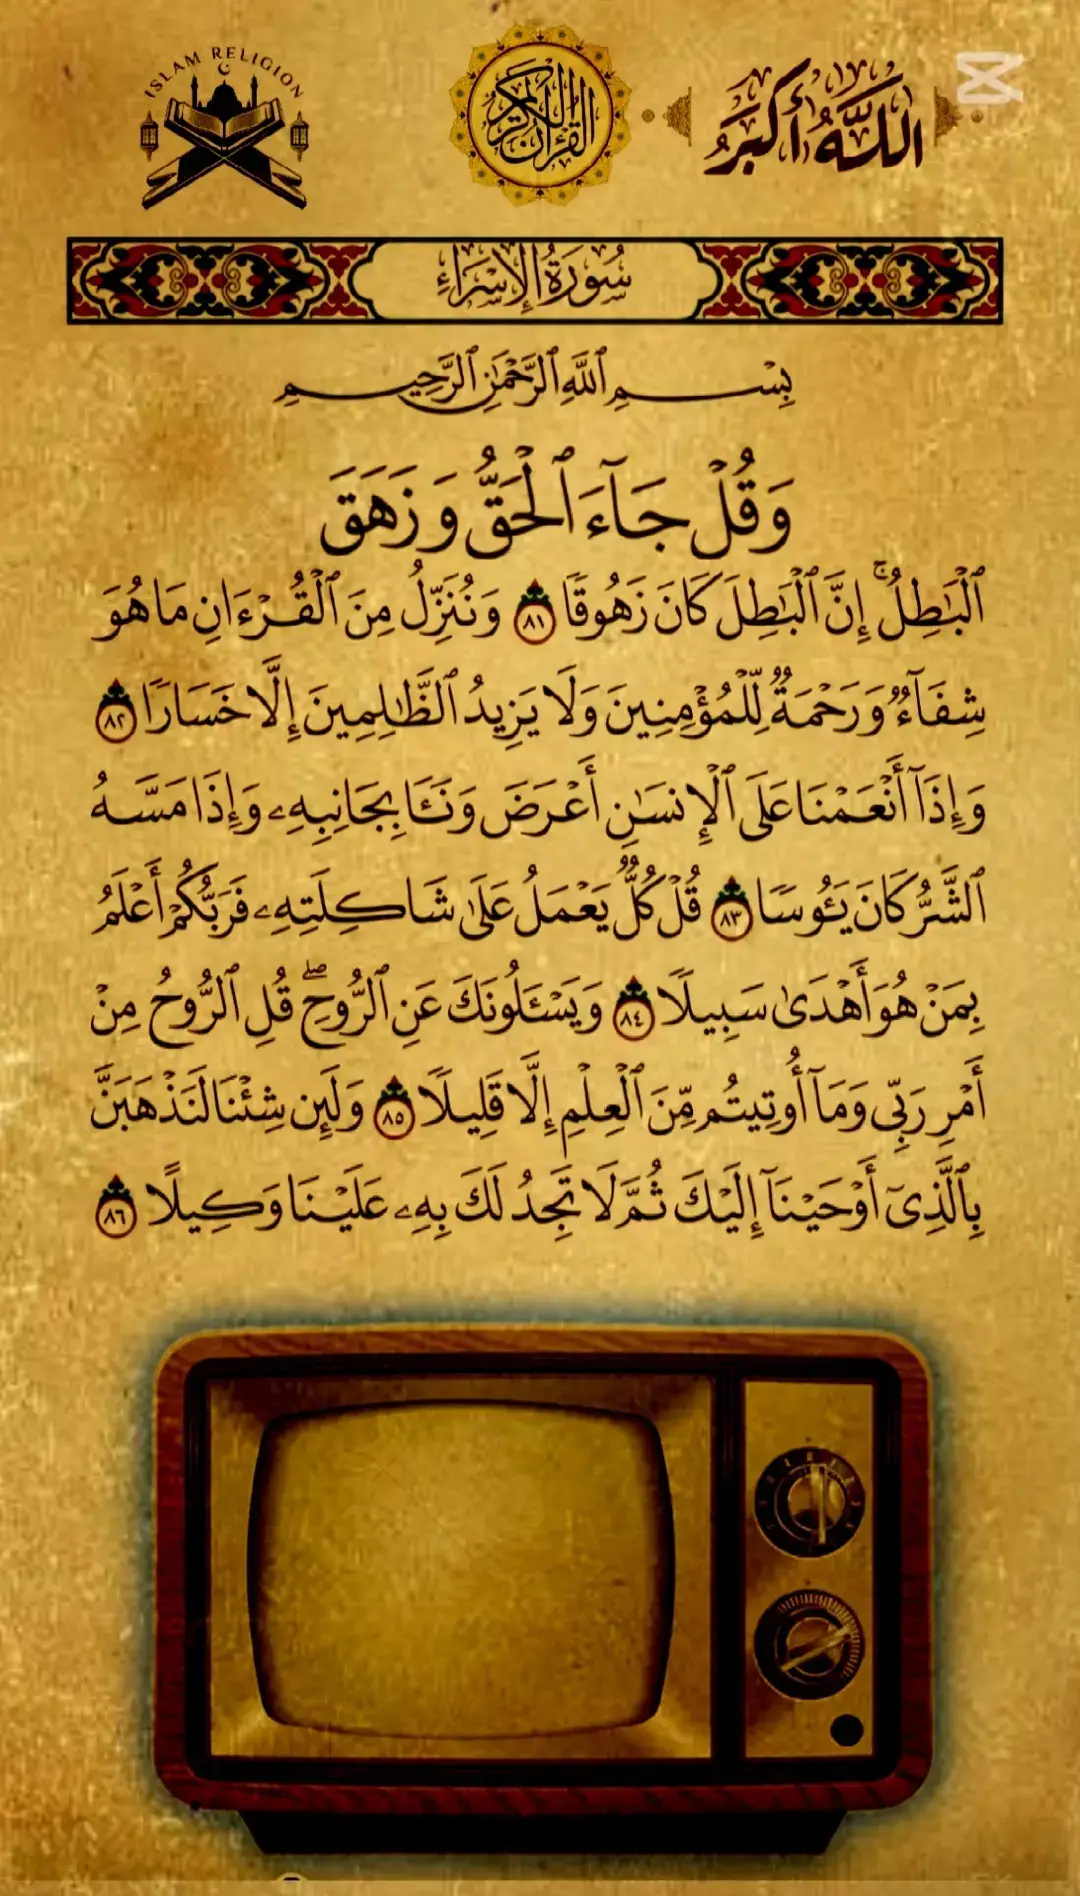 ISLAM RELIGION
القرآن الكريم
اللَّهُ أَكْبَرُ
سُورَةُ الإِسْرَاءِ
بِسْمِ ٱللَّهِ ٱلرَّحْمَٰنِ ٱلرَّحِيمِ
وَقُلْ جَآءَ ٱلْحَقُّ وَزَهَقَ
ٱلْبَٰطِلُ ۚ إِنَّ ٱلْبَٰطِلَ كَانَ زَهُوقًا ٨١ وَنُنَزِّلُ مِنَ ٱلْقُرْءَانِ مَا هُوَ
شِفَآءٌ وَرَحْمَةٌ لِّلْمُؤْمِنِينَ وَلَا يَزِيدُ ٱلظَّٰلِمِينَ إِلَّا خَسَارًا ٨٢
وَإِذَآ أَنْعَمْنَا عَلَى ٱلْإِنسَٰنِ أَعْرَضَ وَنَـَٔا بِجَانِبِهِۦ وَإِذَا مَسَّهُ
ٱلشَّرُّ كَانَ يَـُٔوسًا ٨٣ قُلْ كُلٌّ يَعْمَلُ عَلَىٰ شَاكِلَتِهِۦ فَرَبُّكُمْ أَعْلَمُ
بِمَنْ هُوَ أَهْدَىٰ سَبِيلًا ٨٤ وَيَسْـَٔلُونَكَ عَنِ ٱلرُّوحِ ۖ قُلِ ٱلرُّوحُ مِنْ
أَمْرِ رَبِّى وَمَآ أُوتِيتُم مِّنَ ٱلْعِلْمِ إِلَّا قَلِيلًا ٨٥ وَلَئِن شِئْنَا لَنَذْهَبَنَّ
بِٱلَّذِىٓ أَوْحَيْنَآ إِلَيْكَ ثُمَّ لَا تَجِدُ لَكَ بِهِۦ عَلَيْنَا وَكِيلًا ٨٦